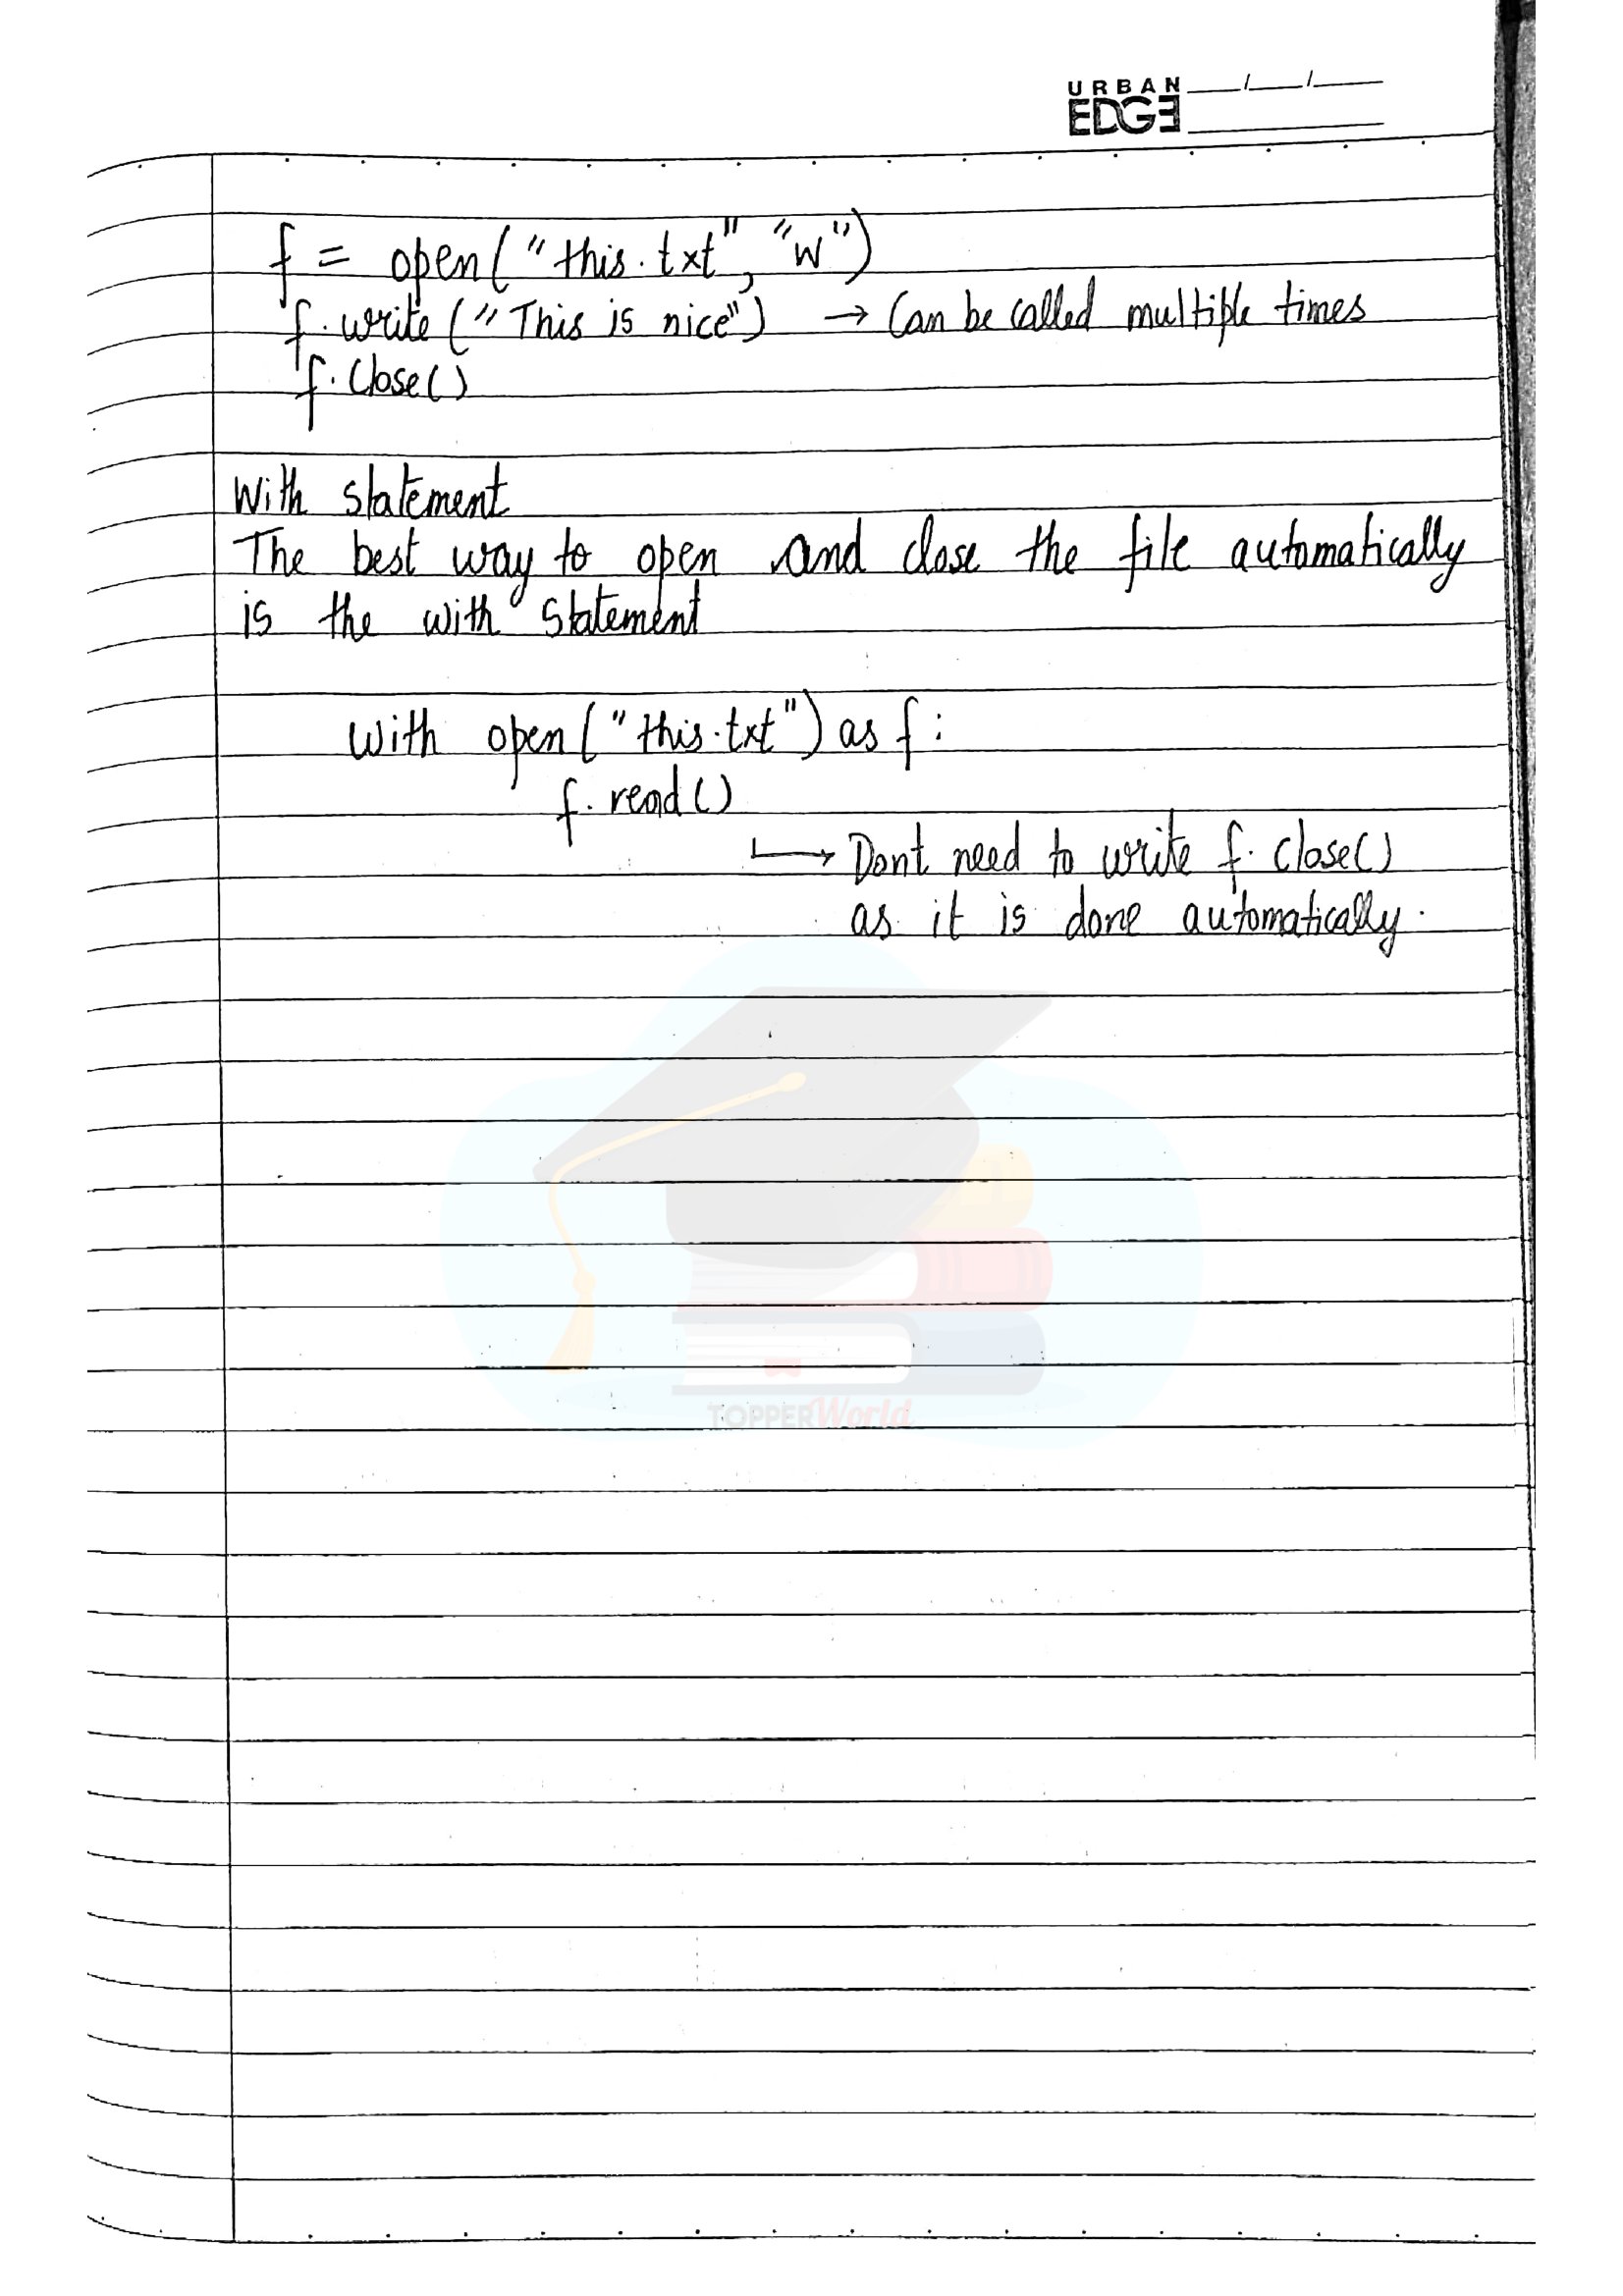 URBAN
EDGE
f = open("this.txt", "w")
f.write("This is nice") → Can be called multiple times
f.close()
With statement
The best way to open and close the file automatically
is the with statement
with open("this.txt") as f:
f.read()
→ Dont need to write f.close()
as it is done automatically.
TOPPERWorld